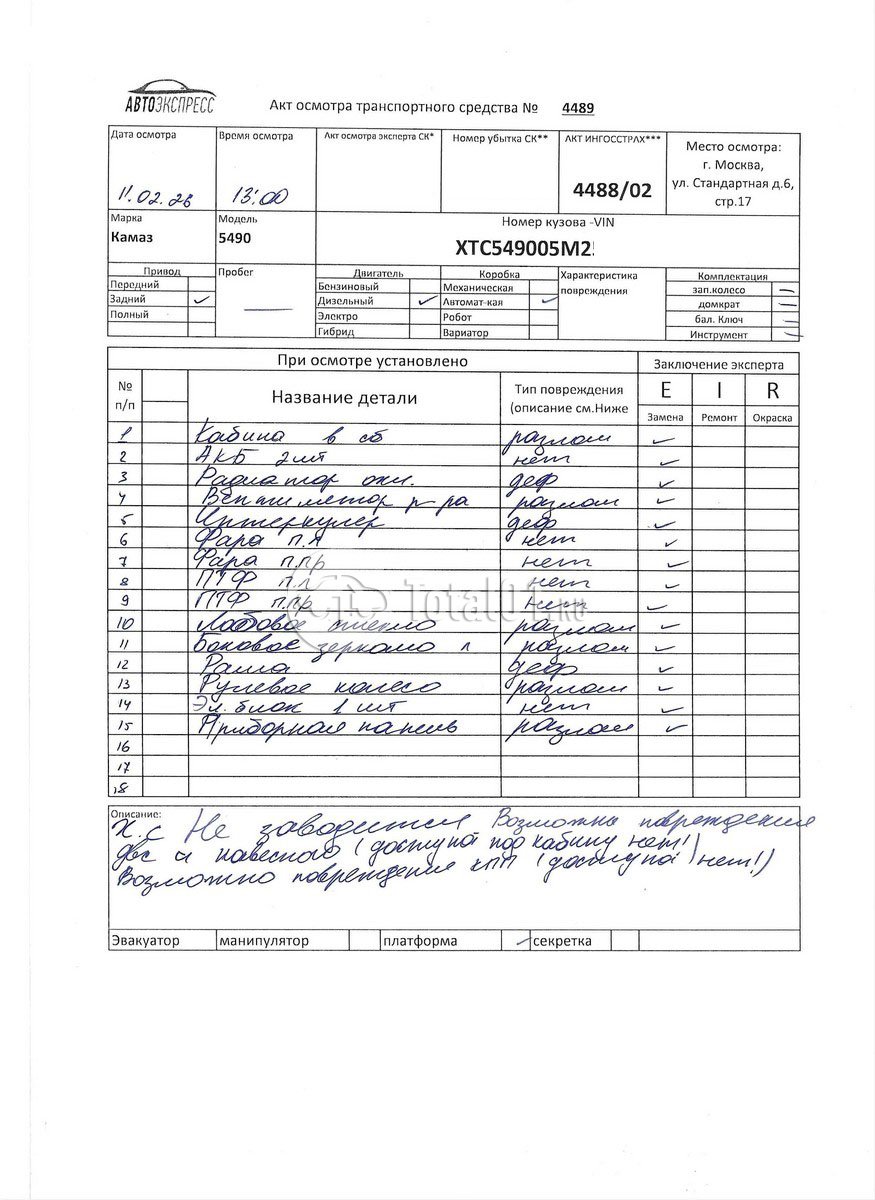 АВТОЭКСПРЕСС
Акт осмотра транспортного средства № 4489
Дата осмотра Время осмотра Акт осмотра эксперта СК* Номер убытка СК** АКТ ИНГОССТРАХ*** Место осмотра:
г. Москва,
11.02.26 13:00 4488/02 ул. Стандартная д.6,
стр.17
Марка Модель Номер кузова -VIN
Камаз 5490 XTC549005M2
Привод Пробег Двигатель Коробка Характеристика Комплектация
Передний Бензиновый Механическая повреждения зап.колесо —
Задний ✓ — Дизельный ✓ Автомат-кая ✓ домкрат —
Полный Электро Робот бал. Ключ —
Гибрид Вариатор Инструмент —
При осмотре установлено Заключение эксперта
№ п/п Название детали Тип повреждения (описание см.Ниже E I R
Замена Ремонт Окраска
1 Кабина в сб разлом ✓
2 АКБ 2 шт нет ✓
3 Радиатор охл. деф ✓
4 Вентилятор р-ра разлом ✓
5 Интеркулер деф ✓
6 Фара п.л нет ✓
7 Фара п.пр нет ✓
8 ПТФ п.л нет ✓
9 ПТФ п.пр нет ✓
10 Лобовое стекло разлом ✓
11 Боковое зеркало л разлом ✓
12 Рама деф ✓
13 Рулевое колесо разлом ✓
14 Эл. блок 1 шт нет ✓
15 Приборная панель разлом ✓
16
17
18
Total01.RU
Описание:
Х.с Не заводится Возможно повреждения
двс и навесного (доступа под кабину нет!)
Возможно повреждения КПП (доступа нет!)
Эвакуатор манипулятор платформа ✓ секретка